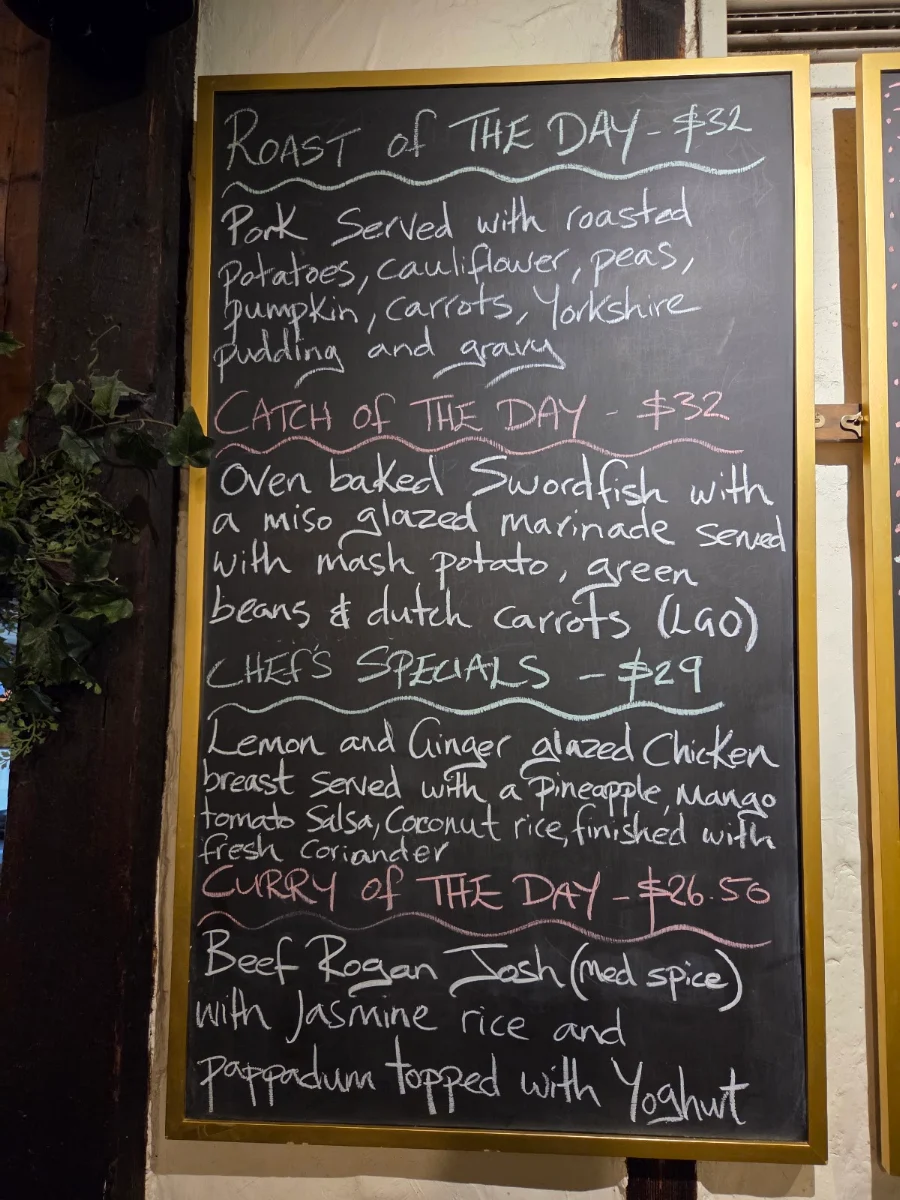 ROAST of THE DAY - $32
Pork Served with roasted
potatoes, cauliflower, peas,
pumpkin, carrots, Yorkshire
pudding and gravy
CATCH of THE DAY - $32
Oven baked Swordfish with
a miso glazed marinade served
with mash potato, green
beans & dutch carrots (LGO)
CHEF'S SPECIALS - $29
Lemon and Ginger glazed Chicken
breast served with a Pineapple, Mango
tomato Salsa, Coconut rice, finished with
fresh Coriander
CURRY of THE DAY - $26.50
Beef Rogan Josh (med spice)
with Jasmine rice and
pappadum topped with Yoghurt